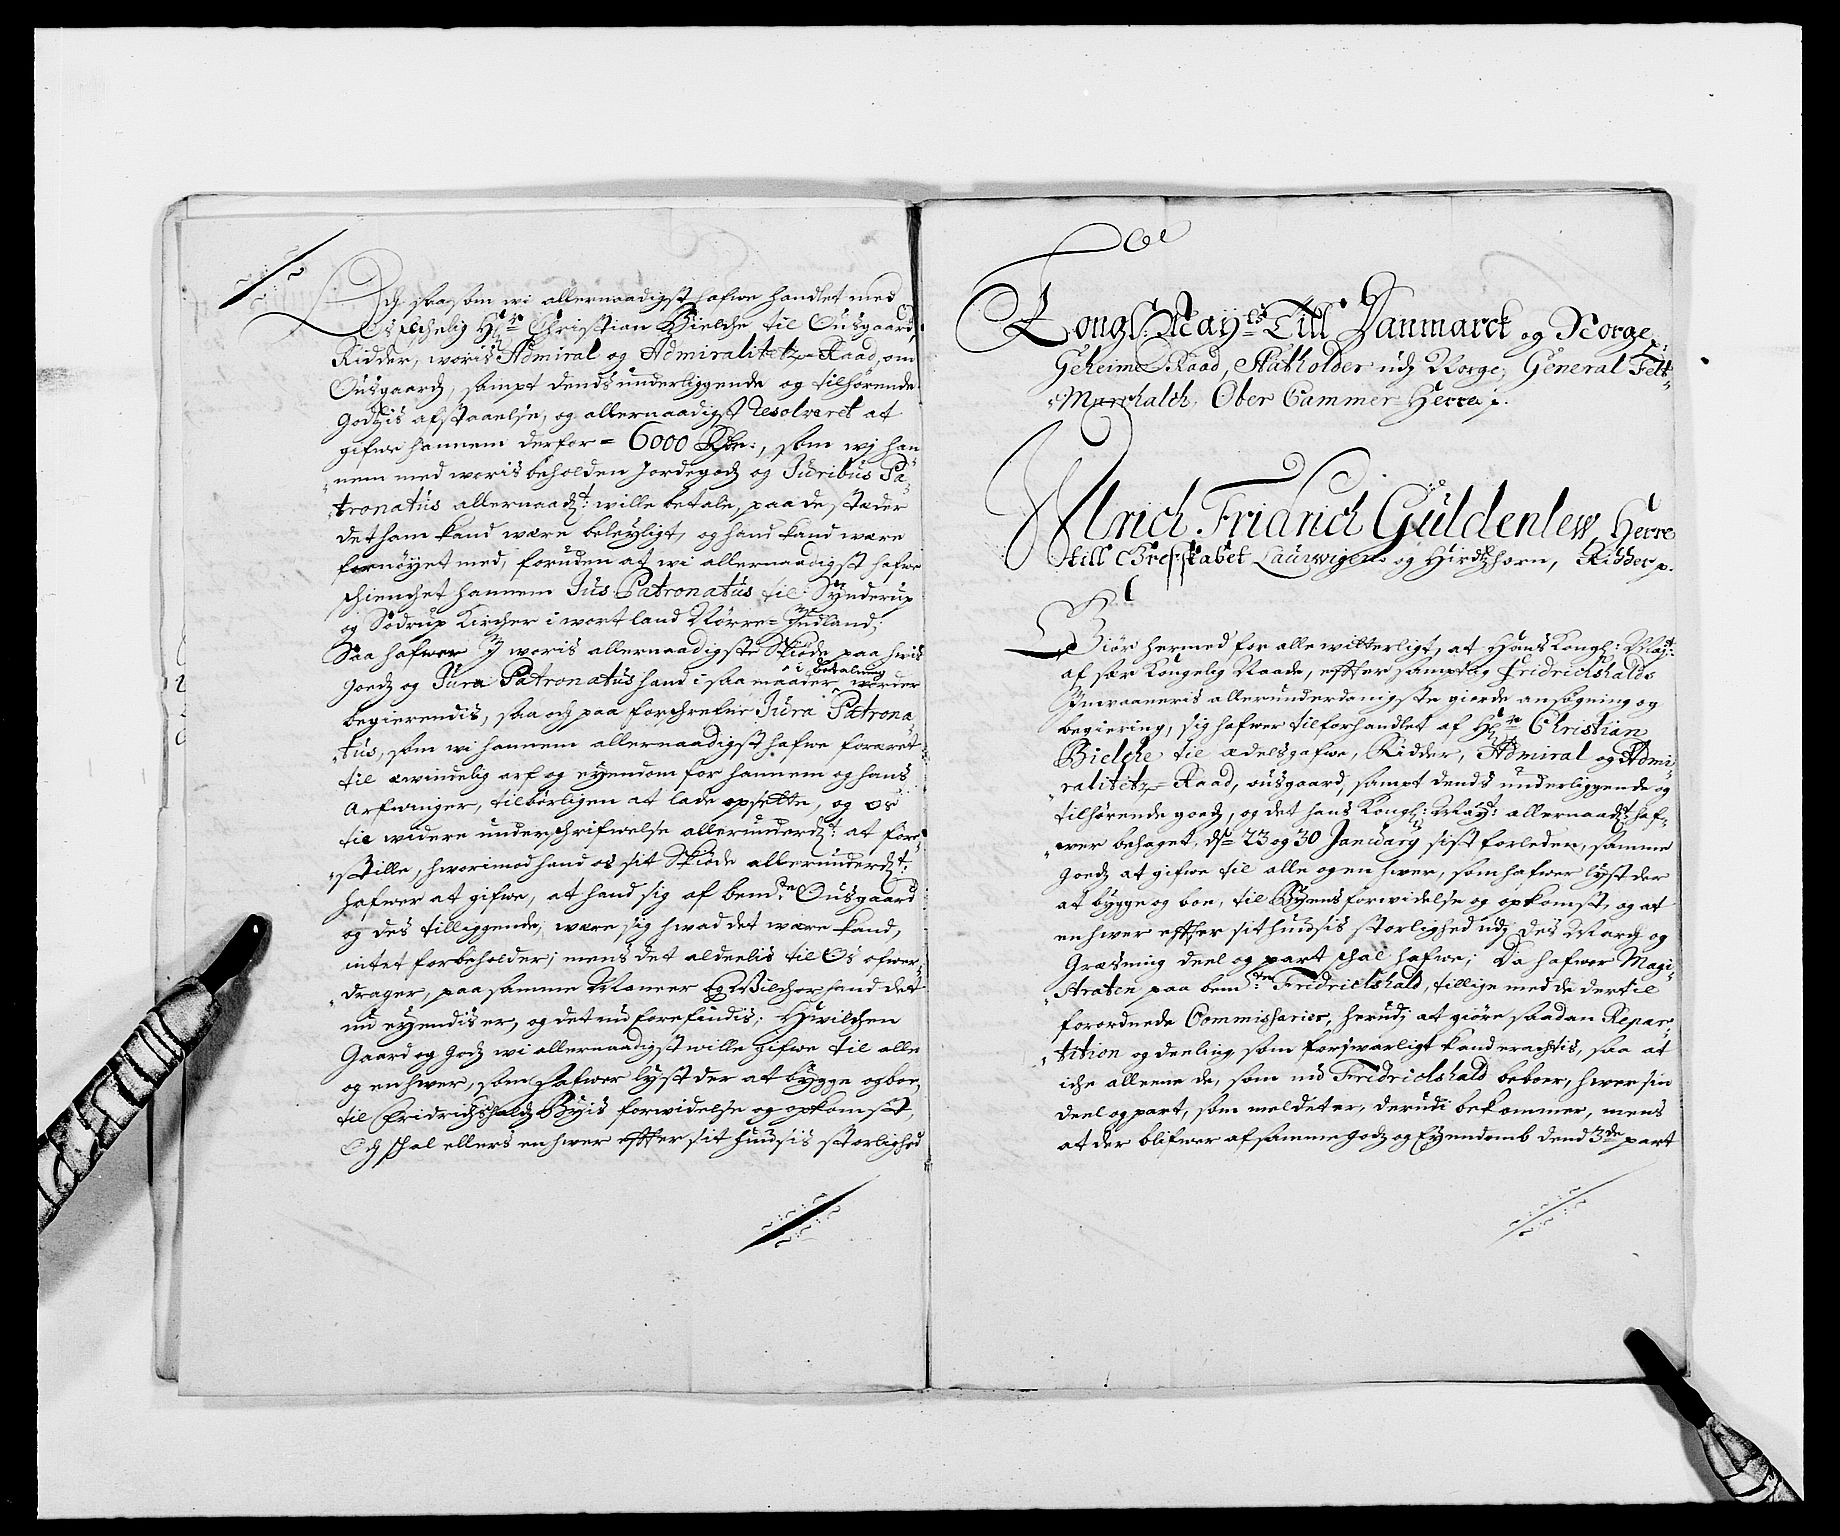 Och saasom wi allernaadigst hafwe handlet med
Os Elschelig Hr: Christian Bielche til Ousgaard,
Ridder, woris Admiral og Admiralitetz-Raad, om
Ousgaard, sampt dends underliggende og tilhørende
Godzis afstaaelse, og allernaadigst resolveret at
gifwe hannem derfor = 6000 Rdr:, som wj han-
nem med woris beholden Jordegodz og Juribus Pa-
tronatus allernaadt: wille betale, paa de stæder
det ham kand være beleyligt, og hand kand wære
fornøyet med, foruden at wi allernaadigst hafwe
schienchet hannem Jus Patronatus til Synderup
og Sødrup Kircher i wort land Nørre-Judland;
Saa hafwer J woris allernaadigste Skiøde paa hwis
Goedz og Jura Patronatus hand i saa maader i betalning worder
begierendis, saa och paa forschrefne Jura Patrona-
tus, som wi hannem allernaadigst hafwe foræret
til ewindelig arf og eyendom for hannem og hans
Arfwinger, tilbørligen at lade opsette, og os
til widere underschrifwelse allerunderdt: at fore-
stille, hworimod hand os sit Skiøde allerunderdt:
hafwer at gifwe, at hand sig af bemte Ousgaard
og des tilliggende, wære sig hwad det wære kand,
intet forbeholder; mens det aldeelis til Os ofwer-
drager, paa samme Maneer og Wilchor hand det
nu eyendis er, og det nu forefindis; Hwilchen
Gaard og Godz wi allernaadigst wille gifwe til alle
og en hwer, som hafwer lyst der at bygge og boe,
til Fridrichshaldz Byis forwidelse og opkomst,
Och schal ellers en hwer effter sit huusis storlighed
Kongl: Mayts Till Danmarck og Norge p:
Geheime Raad, Statholder udj Norge, General Felt-
Marchalch, Ober Cammer Herre p.
Ulrich Fridrich Guldenlew, Herre
till Grefskabet Laurwigen og Hirdtzhorn, Ridder p.
Giør hermed for alle witterligt, at Hans Kongl: Mayt:
af sær Kongelig Naade, effter samptlig Fridrichshalds
Inwaaneris allerunderdanigste giorde ansøgning og
begiering, sig hafwer tilforhandlet af Hr: Christian
Bielche til Ædelsgafwe, Ridder, Admiral og Admi-
ralitetz-Raad, Ousgaard, sampt dends underliggende og
tilhørende goedz, og det hans Kongl: Mayt: allernaadt: haf-
wer behaget, dn 23 og 30 January sist forleden, samme
goedz at gifwe til alle og en hwer, som hafwer lyst der
at bygge og boe, til Byens forwidelse og opkomst, og at
en hwer effter sit huusis storlighed udj des March og
Græsning deel og part schal hafwe; Da hafwer Magi-
straten paa bemte: Fridrichshald, tillige med de dertil
forordnede Commissarier, herudj at giøre saadan Repar-
tition og deeling som forswarligt kand eractis, saa at
iche alleene de, som nu Fridrichshald beboer, hwer sin
deel og part, som meldet er, derudi bekommer, mens
at der blifwer af samme Godz og Eyendomb dend 3de part